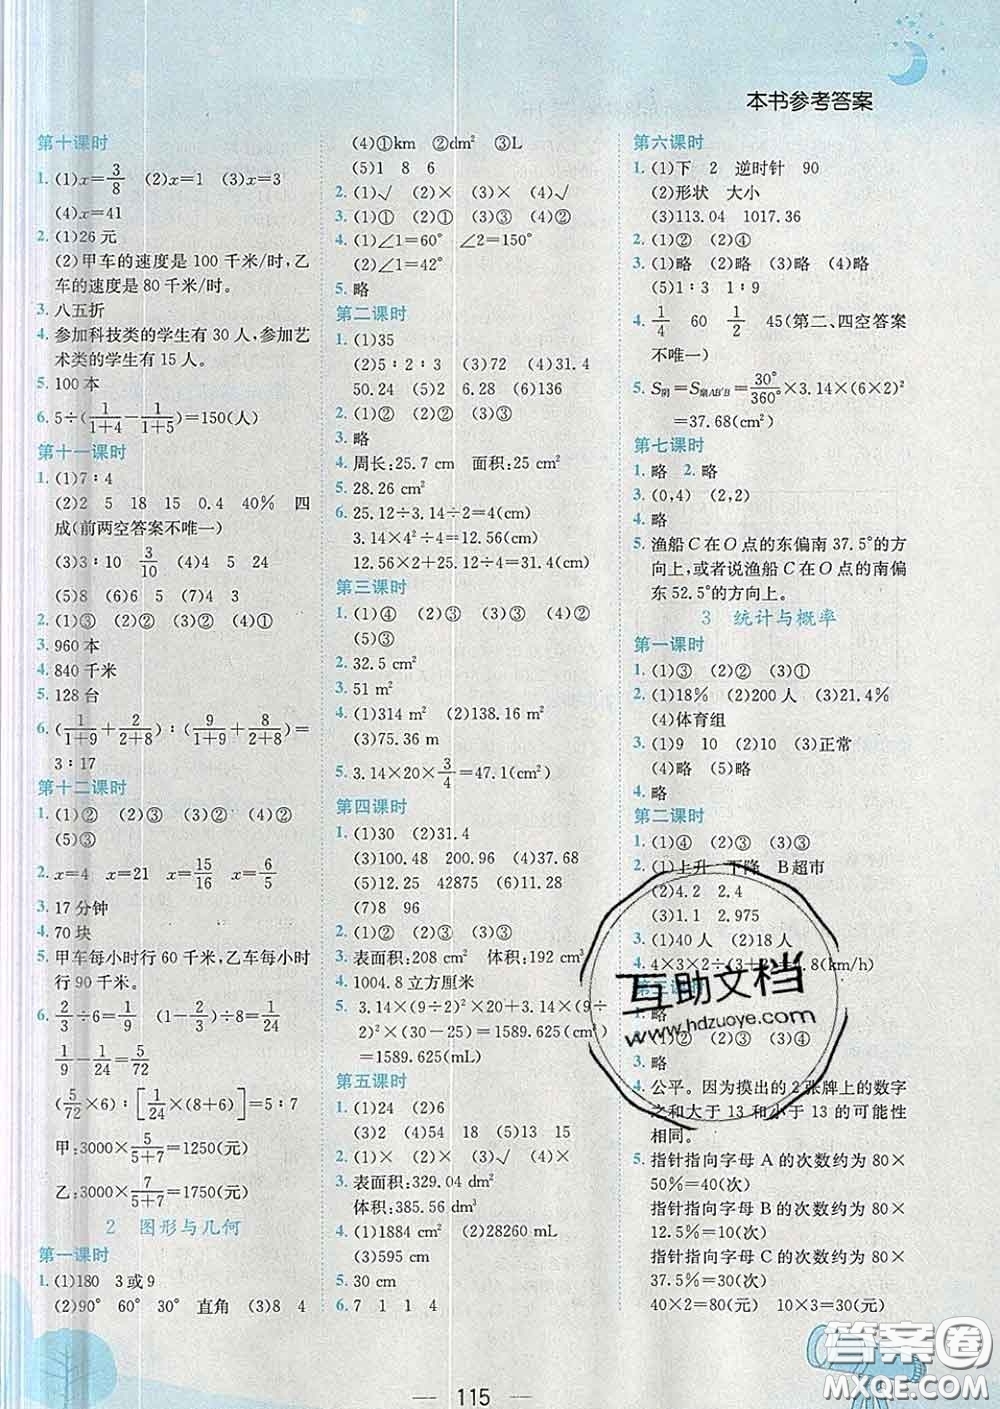 本书参考答案
第十课时
1. (1)x=3/8 (2)x=1 (3)x=3
(4)x=41
2. (1)26元
(2)甲车的速度是100千米/时,乙
车的速度是80千米/时。
3. 八五折
4. 参加科技类的学生有30人,参加艺
术类的学生有15人。
5. 100本
6. 5÷(1/(1+4)-1/(1+5))=150(人)
第十一课时
1. (1)7∶4
(2)2 5 18 15 0.4 40% 四
成(前两空答案不唯一)
(3)3∶10 3/10 (4)5 24
(5)8 (6)5 (7)4 3
2. (1)③ (2)③ (3)② (4)①
3. 960本
4. 840千米
5. 128台
6. (1/(1+9)+2/(2+8))∶(9/(1+9)+8/(2+8))=
3∶17
第十二课时
1. (1)② (2)③ (3)② (4)②
(5)③
2. x=4 x=21 x=15/16 x=6/5
3. 17分钟
4. 70块
5. 甲车每小时行60千米,乙车每小时
行90千米。
6. 2/3÷6=1/9 (1-2/3)÷8=1/24
1/9-1/24=5/72
(5/72×6)∶[1/24×(8+6)]=5∶7
甲:3000×5/(5+7)=1250(元)
乙:3000×7/(5+7)=1750(元)
2 图形与几何
第一课时
1. (1)180 3或9
(2)90° 60° 30° 直角 (3)8 4
(4)①km ②dm² ③L
(5)1 8 6
2. (1)√ (2)× (3)× (4)×
3. (1)① (2)① (3)② (4)②
4. (1)∠1=60° ∠2=150°
(2)∠1=42°
5. 略
第二课时
1. (1)35
(2)5∶2∶3 (3)72 (4)31.4
50.24 (5)2 6.28 (6)136
2. (1)② (2)① (3)②
3. 略
4. 周长:25.7 cm 面积:25 cm²
5. 28.26 cm²
6. 25.12÷3.14÷2=4(cm)
3.14×4²÷4=12.56(cm)
12.56×2+25.12÷4=31.4(cm)
第三课时
1. (1)④ (2)④ (3)② (4)②
(5)③
2. 32.5 cm²
3. 51 m²
4. (1)314 m² (2)138.16 m²
(3)75.36 m
5. 3.14×20×3/4=47.1(cm²)
第四课时
1. (1)30 (2)31.4
(3)100.48 200.96 (4)3
(5)12.56 42875 (6)10
(7)8 96
2. (1)② (2)③ (3)② (4)③
3. 表面积:208 cm² 体积:192 cm³
4. 1004.8立方厘米
5. 3.14×(9÷2)²×15+3.14×(9÷
2)²×(30-25)=1589.625(cm³)
=1589.625(mL)
第五课时
1. (1)24 (2)6
(3)2 (4)54 18 (5)13 15
2. (1)× (2)√ (3)√ (4)×
3. 表面积:329.04 dm²
体积:385.56 dm³
4. (1)1884 cm² (2)28260 mL
(3)595 cm
5. 30 cm
6. 7 1 1 4
第六课时
1. (1)下 2 逆时针 90
(2)形状 大小
(3)113.04 1017.36
2. (1)② (2)④
3. (1)略 (2)略 (3)略 (4)略
(5)1∶3 1∶9
4. 1/4 60 1/2 45(第二、四空答案
不唯一)
5. S阴=S扇AB′B=30°/360°×3.14×(6×2)²
=37.68(cm²)
第七课时
1. 略 2. 略
3. (0,4) (2,2)
4. 略
5. 渔船C在O点的东偏南37.5°的方
向上,或者说渔船C在O点的南偏
东52.5°的方向上。
3 统计与概率
第一课时
1. (1)③ (2)② (3)①
2. (1)18% (2)200人 (3)21.4%
(4)体育组
3. (1)9 10 (2)10 (3)正常
(4)略 (5)略
4. 略
第二课时
1. (1)④ (2)③ (3)③
2. (1)上升 下降 B超市
(2)4.2 2.4
(3)1.1 2.975
3. (1)40人 (2)18人
4. 4×3×2÷(3+2)=4.8(km/h)
第三课时
1. 略
2. (1)② (2)③ (3)④
3. 略
4. 公平。因为摸出的2张牌上的数字
之和大于13和小于13的可能性
相同。
5. 指针指向字母A的次数约为80×
50%=40(次)
指针指向字母B的次数约为80×
12.5%=10(次)
指针指向字母C的次数约为80×
37.5%=30(次)
40×2=80(元) 10×3=30(元)
互助文档
www.hdzuoye.com
答案圈
MXQE.COM
115